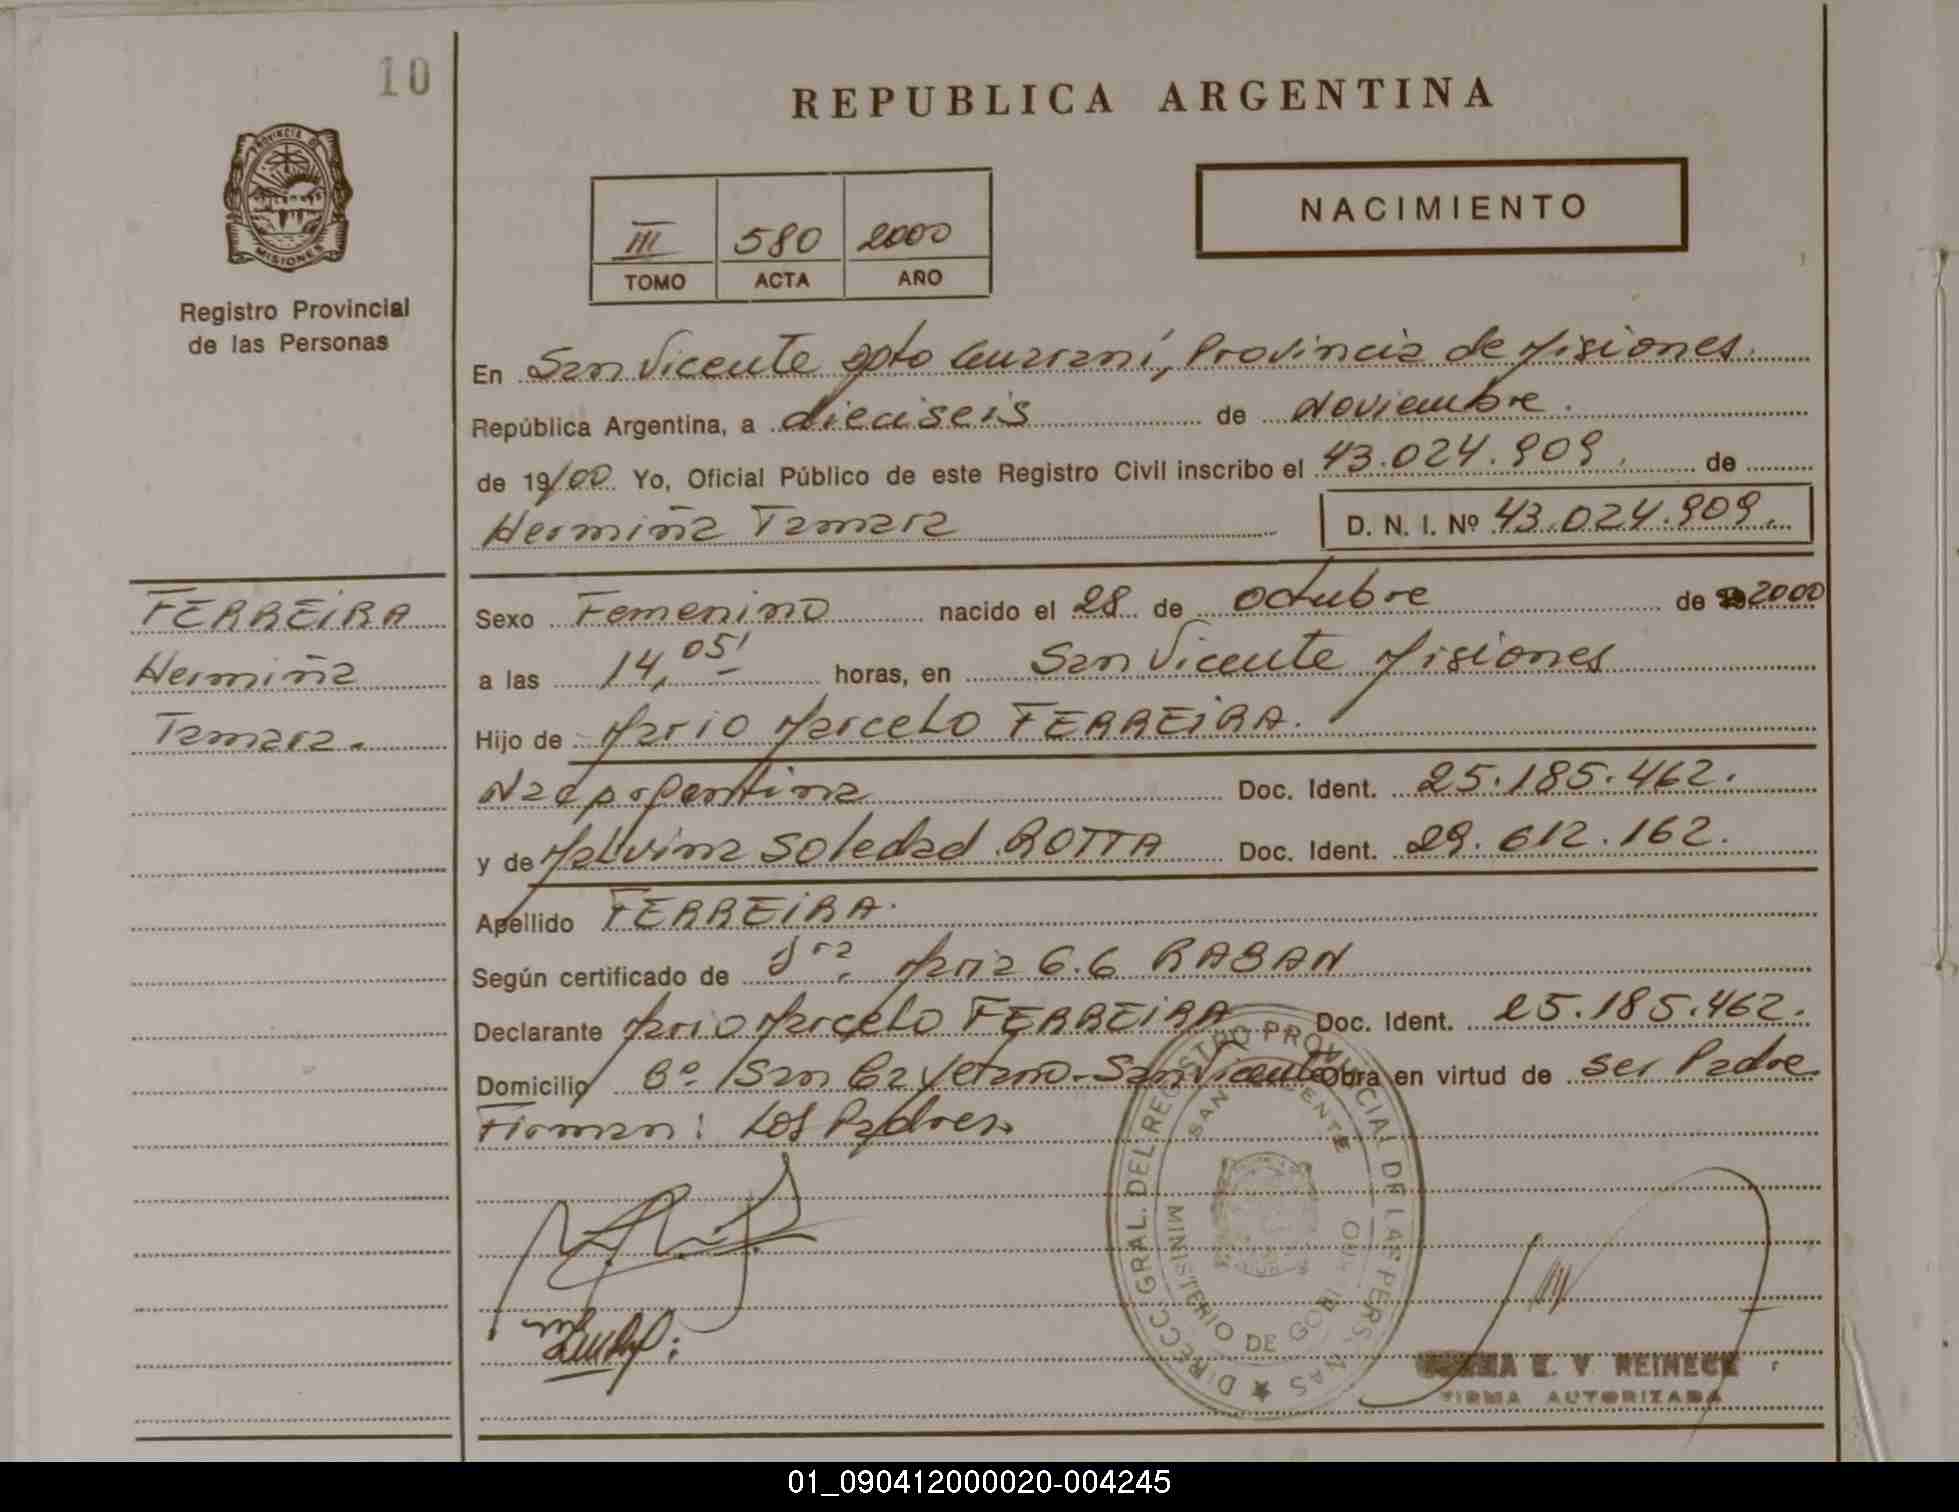 10
REPUBLICA ARGENTINA
PROVINCIA DE
MISIONES
Registro Provincial
de las Personas
III 580 2000
TOMO ACTA AÑO
NACIMIENTO
En San Vicente Dpto Guaraní, Provincia de Misiones.
República Argentina, a dieciseis de Noviembre.
de 19/00 Yo, Oficial Público de este Registro Civil inscribo el 43.024.909. de
Hermiña Tamara D. N. I. Nº 43.024.909.
FERREIRA
Hermiña
Tamara.
Sexo Femenino nacido el 28 de octubre de 2000
a las 14,05' horas, en San Vicente Misiones
Hijo de Mario Marcelo FERREIRA.
Nac Argentina Doc. Ident. 25.185.462.
y de Malvina Soledad ROTTA Doc. Ident. 29.612.162.
Apellido FERREIRA.
Según certificado de Dra. Maria G.G RABAN
Declarante Mario Marcelo FERREIRA Doc. Ident. 25.185.462.
Domicilio Bº San Cayetano - San Vicente Obra en virtud de ser Padre
Firman: Los Padres.
DIRECC. GRAL. DEL REGISTRO PROVINCIAL DE LAS PERSONAS
SAN VICENTE
MINISTERIO DE GOBIERNO
E. V. REINECK
FIRMA AUTORIZADA
01_090412000020-004245